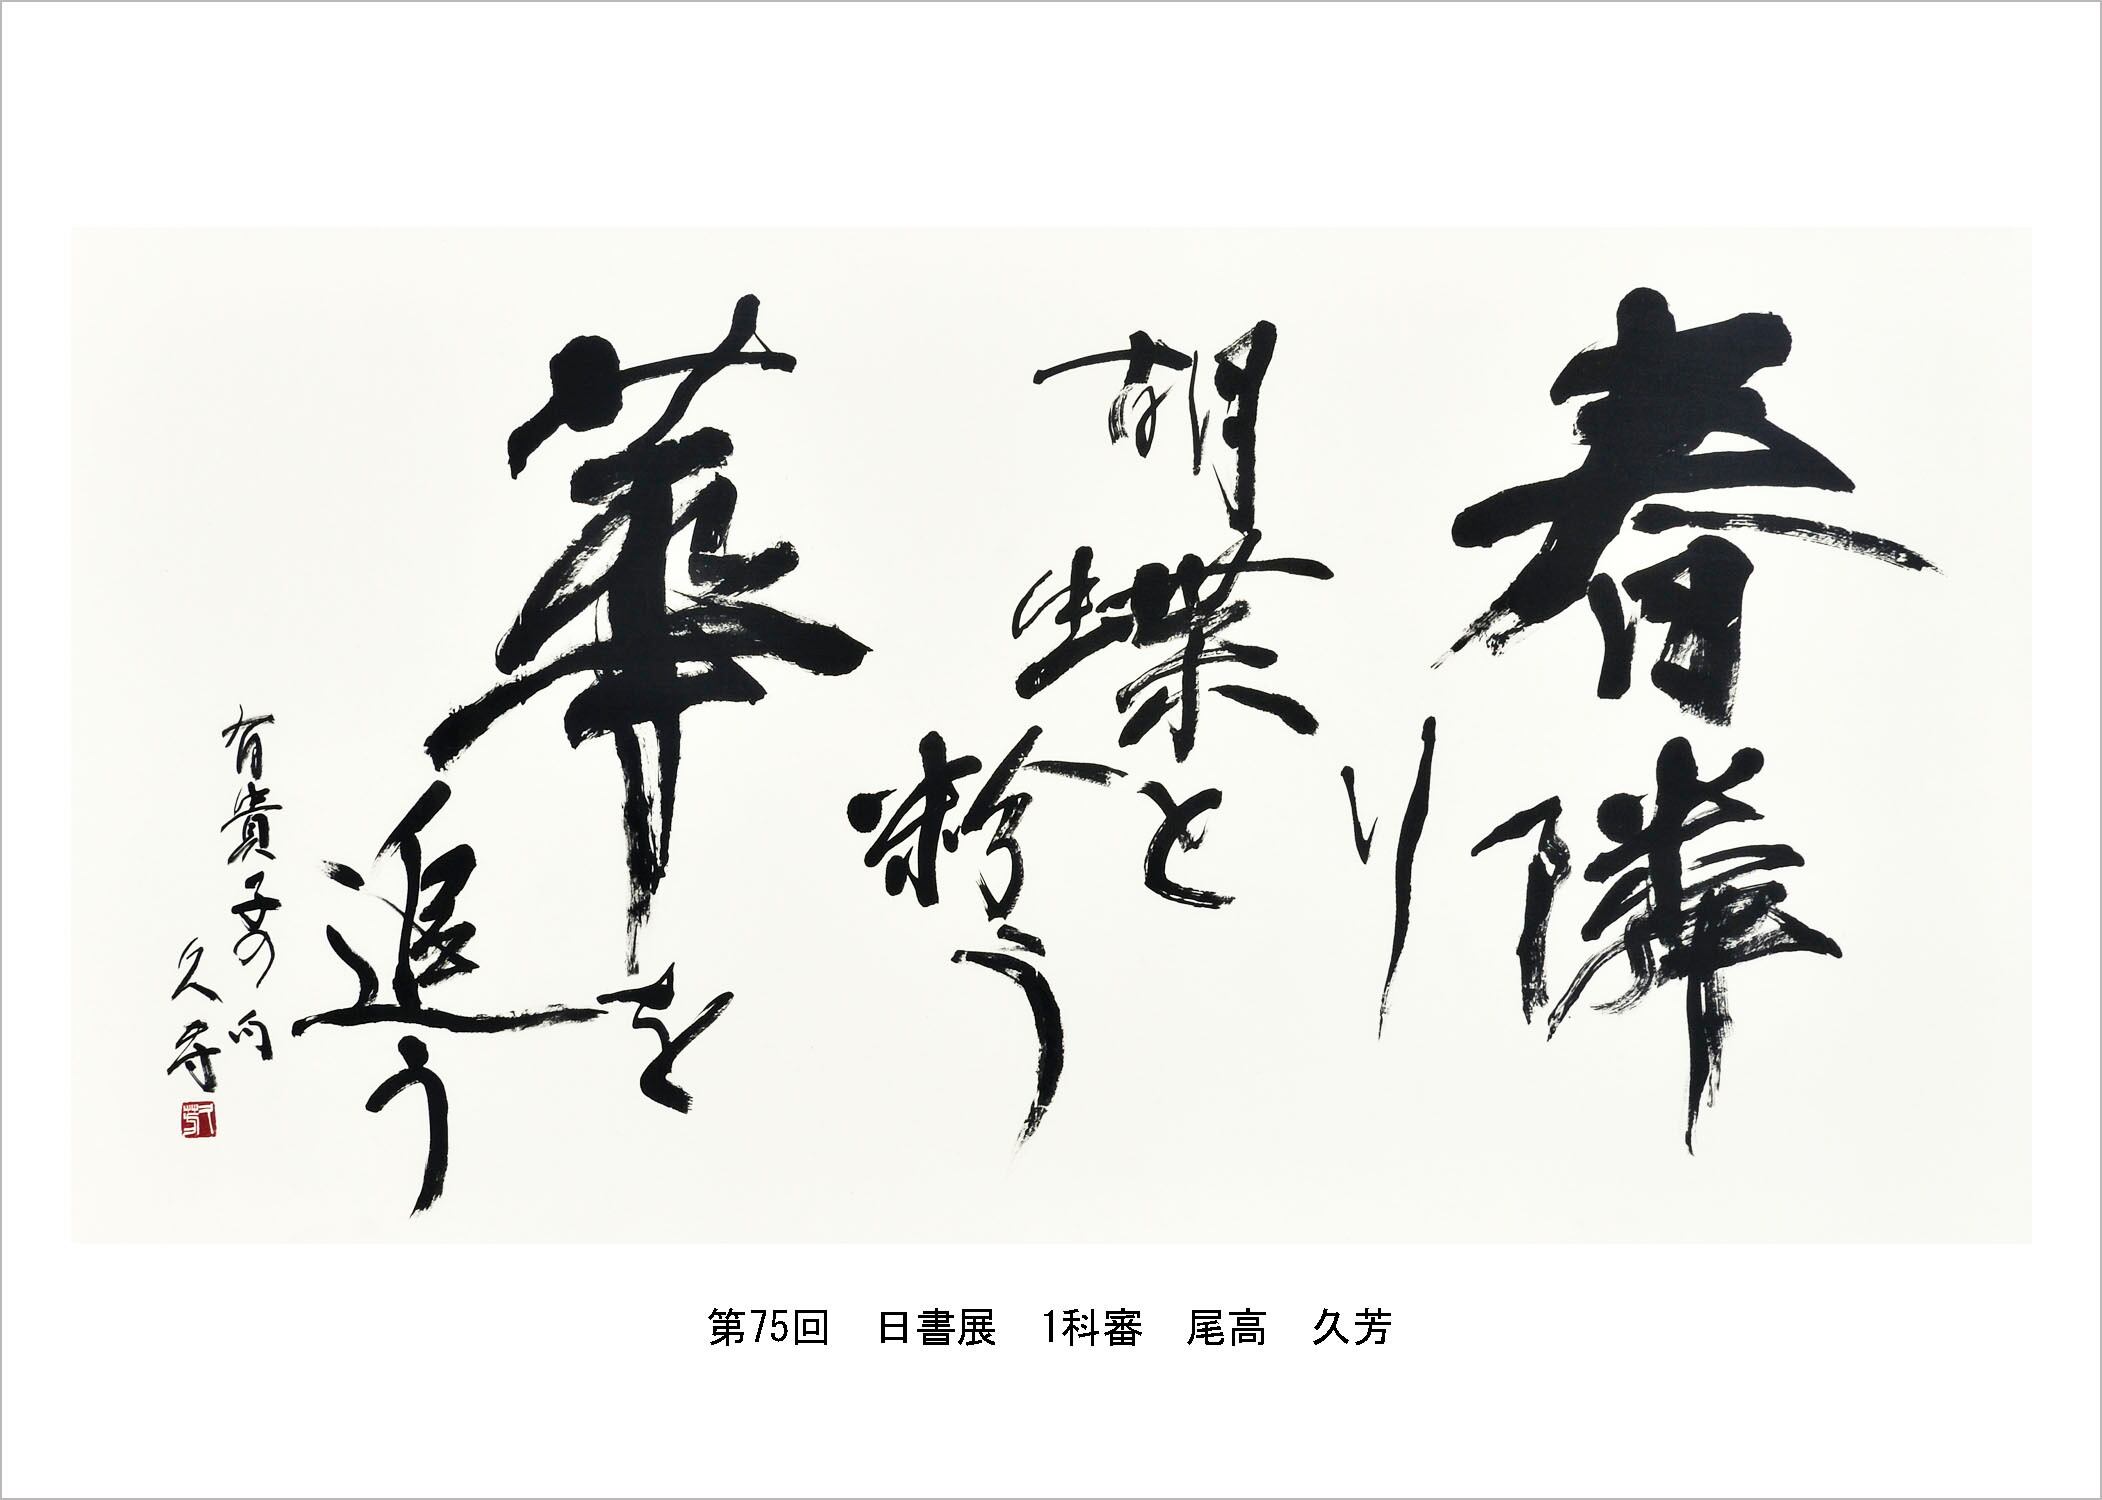 春隣
り
胡蝶と
粉う
華を
追う
有貴子の句
久芳
第75回　日書展　1科審　尾高　久芳